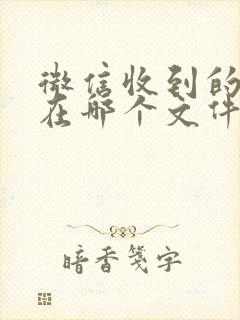 微信收到的
在哪个文件
暗香笺字